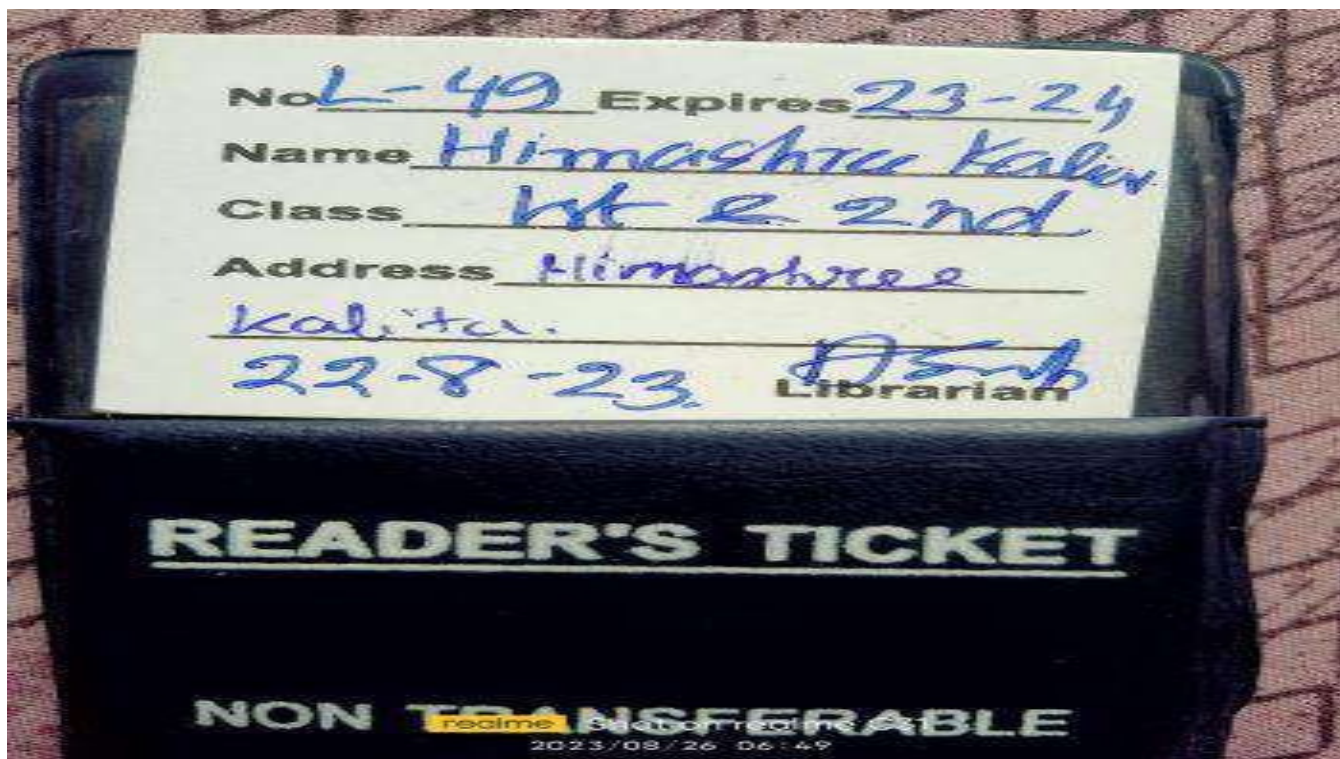 No L-49 Expires 23-24
Name Himashree
Class Ist & 2nd
Address Himashree
Kalita.
22-8-23. Librarian
READER'S TICKET
NON TRANSFERABLE
realme Shot on realme C31
2023/08/26 06:49